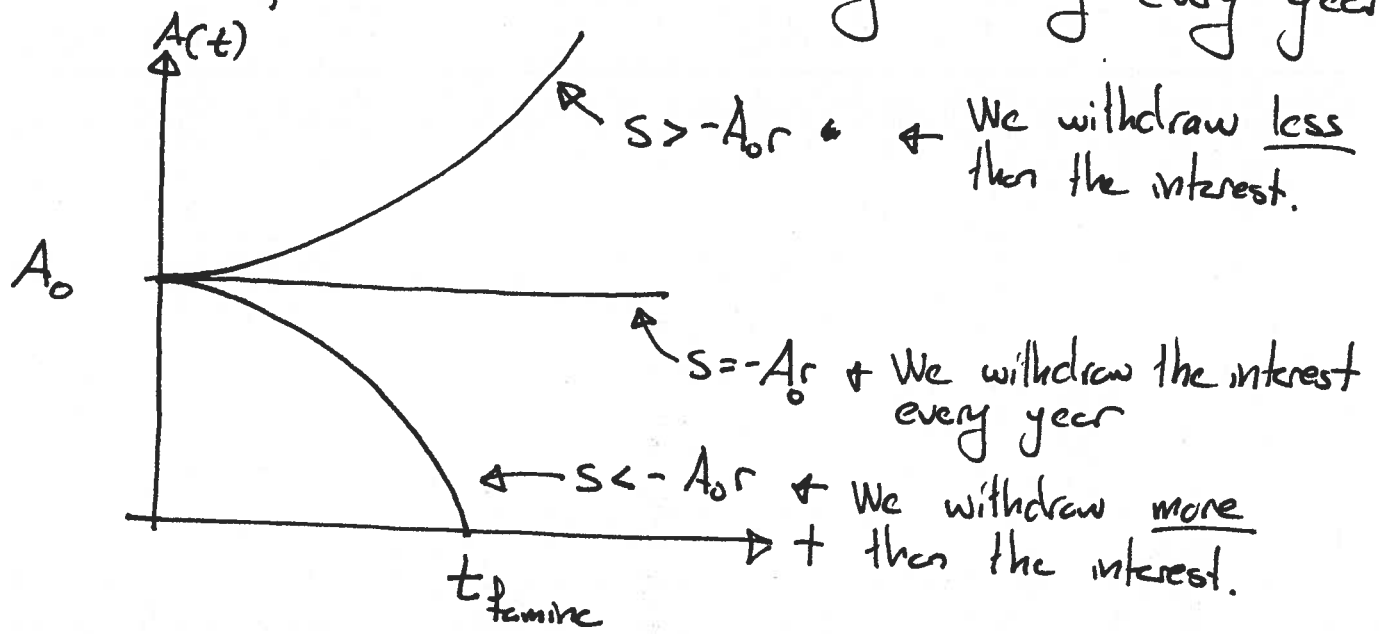 every year
A(t)
s > -A₀r ← We withdraw less
than the interest.
A₀
s = -A₀r ← We withdraw the interest
every year
s < -A₀r ← We withdraw more
than the interest.
t
t famine